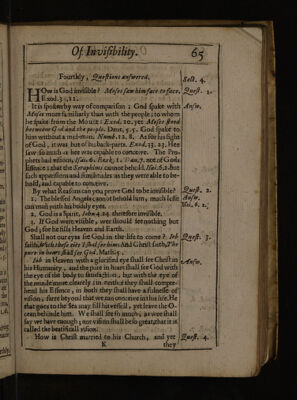 Of Invisibility. 65
Fourthly, Questions answered. Sect. 4.
HOw is God invisible? Moses saw him face to face. Quest. 1.
Exod. 33. 11.
It is spoken by way of comparison: God spake with Answ.
Moses more familiarly than with the people: to whom
he spake from the Mount: Exod. 20. yet Moses stood
between God and the people. Deut. 5. 5. God spake to
him without a mediator: Numb. 12. 8. As for his sight
of God, it was but of his back-parts. Exod. 33. 23. Hee
saw so much as hee was capable to conceive. The Pro-
phets had visions, Isai. 6. Ezek. 1. Dan. 7. not of Gods
Essence: that the Seraphims cannot behold. Isai. 6. 2. but
such apparitions and similitudes as they were able to be-
hold, and capable to conceive.
By what Reasons can you prove God to be invisible? Quest. 2.
1. The blessed Angels cannot behold him, much lesse Answ.
can men with his bodily eyes. Isai. 6. 2.
2. God is a Spirit, John 4. 24. therefore invisible.
3. If God were visible, wee should see nothing but
God; for he fills Heaven and Earth.
Shall not our eyes see God in the life to come? Job Quest. 3.
saith, With these eyes I shall see him: And Christ saith, The
pure in heart shall see God. Matth. 5.
Job in Heaven with a glorified eye shall see Christ in Answ.
his Humanity, and the pure in heart shall see God with
the eye of the body to satisfaction, but with the eye of
the minde more clearely: in neither they shall compre-
hend his Essence, in both they shall have a fulnesse of
vision, farre beyond that we can conceive in this life. He
that goes to the Sea may fill his vessell, yet leave the O-
cean behinde him. We shall see so much, as wee shall
say we have enough; our vision shall be so great, that it is
called the beatificall vision.
How is Christ married to his Church, and yet Quest. 4.
K they